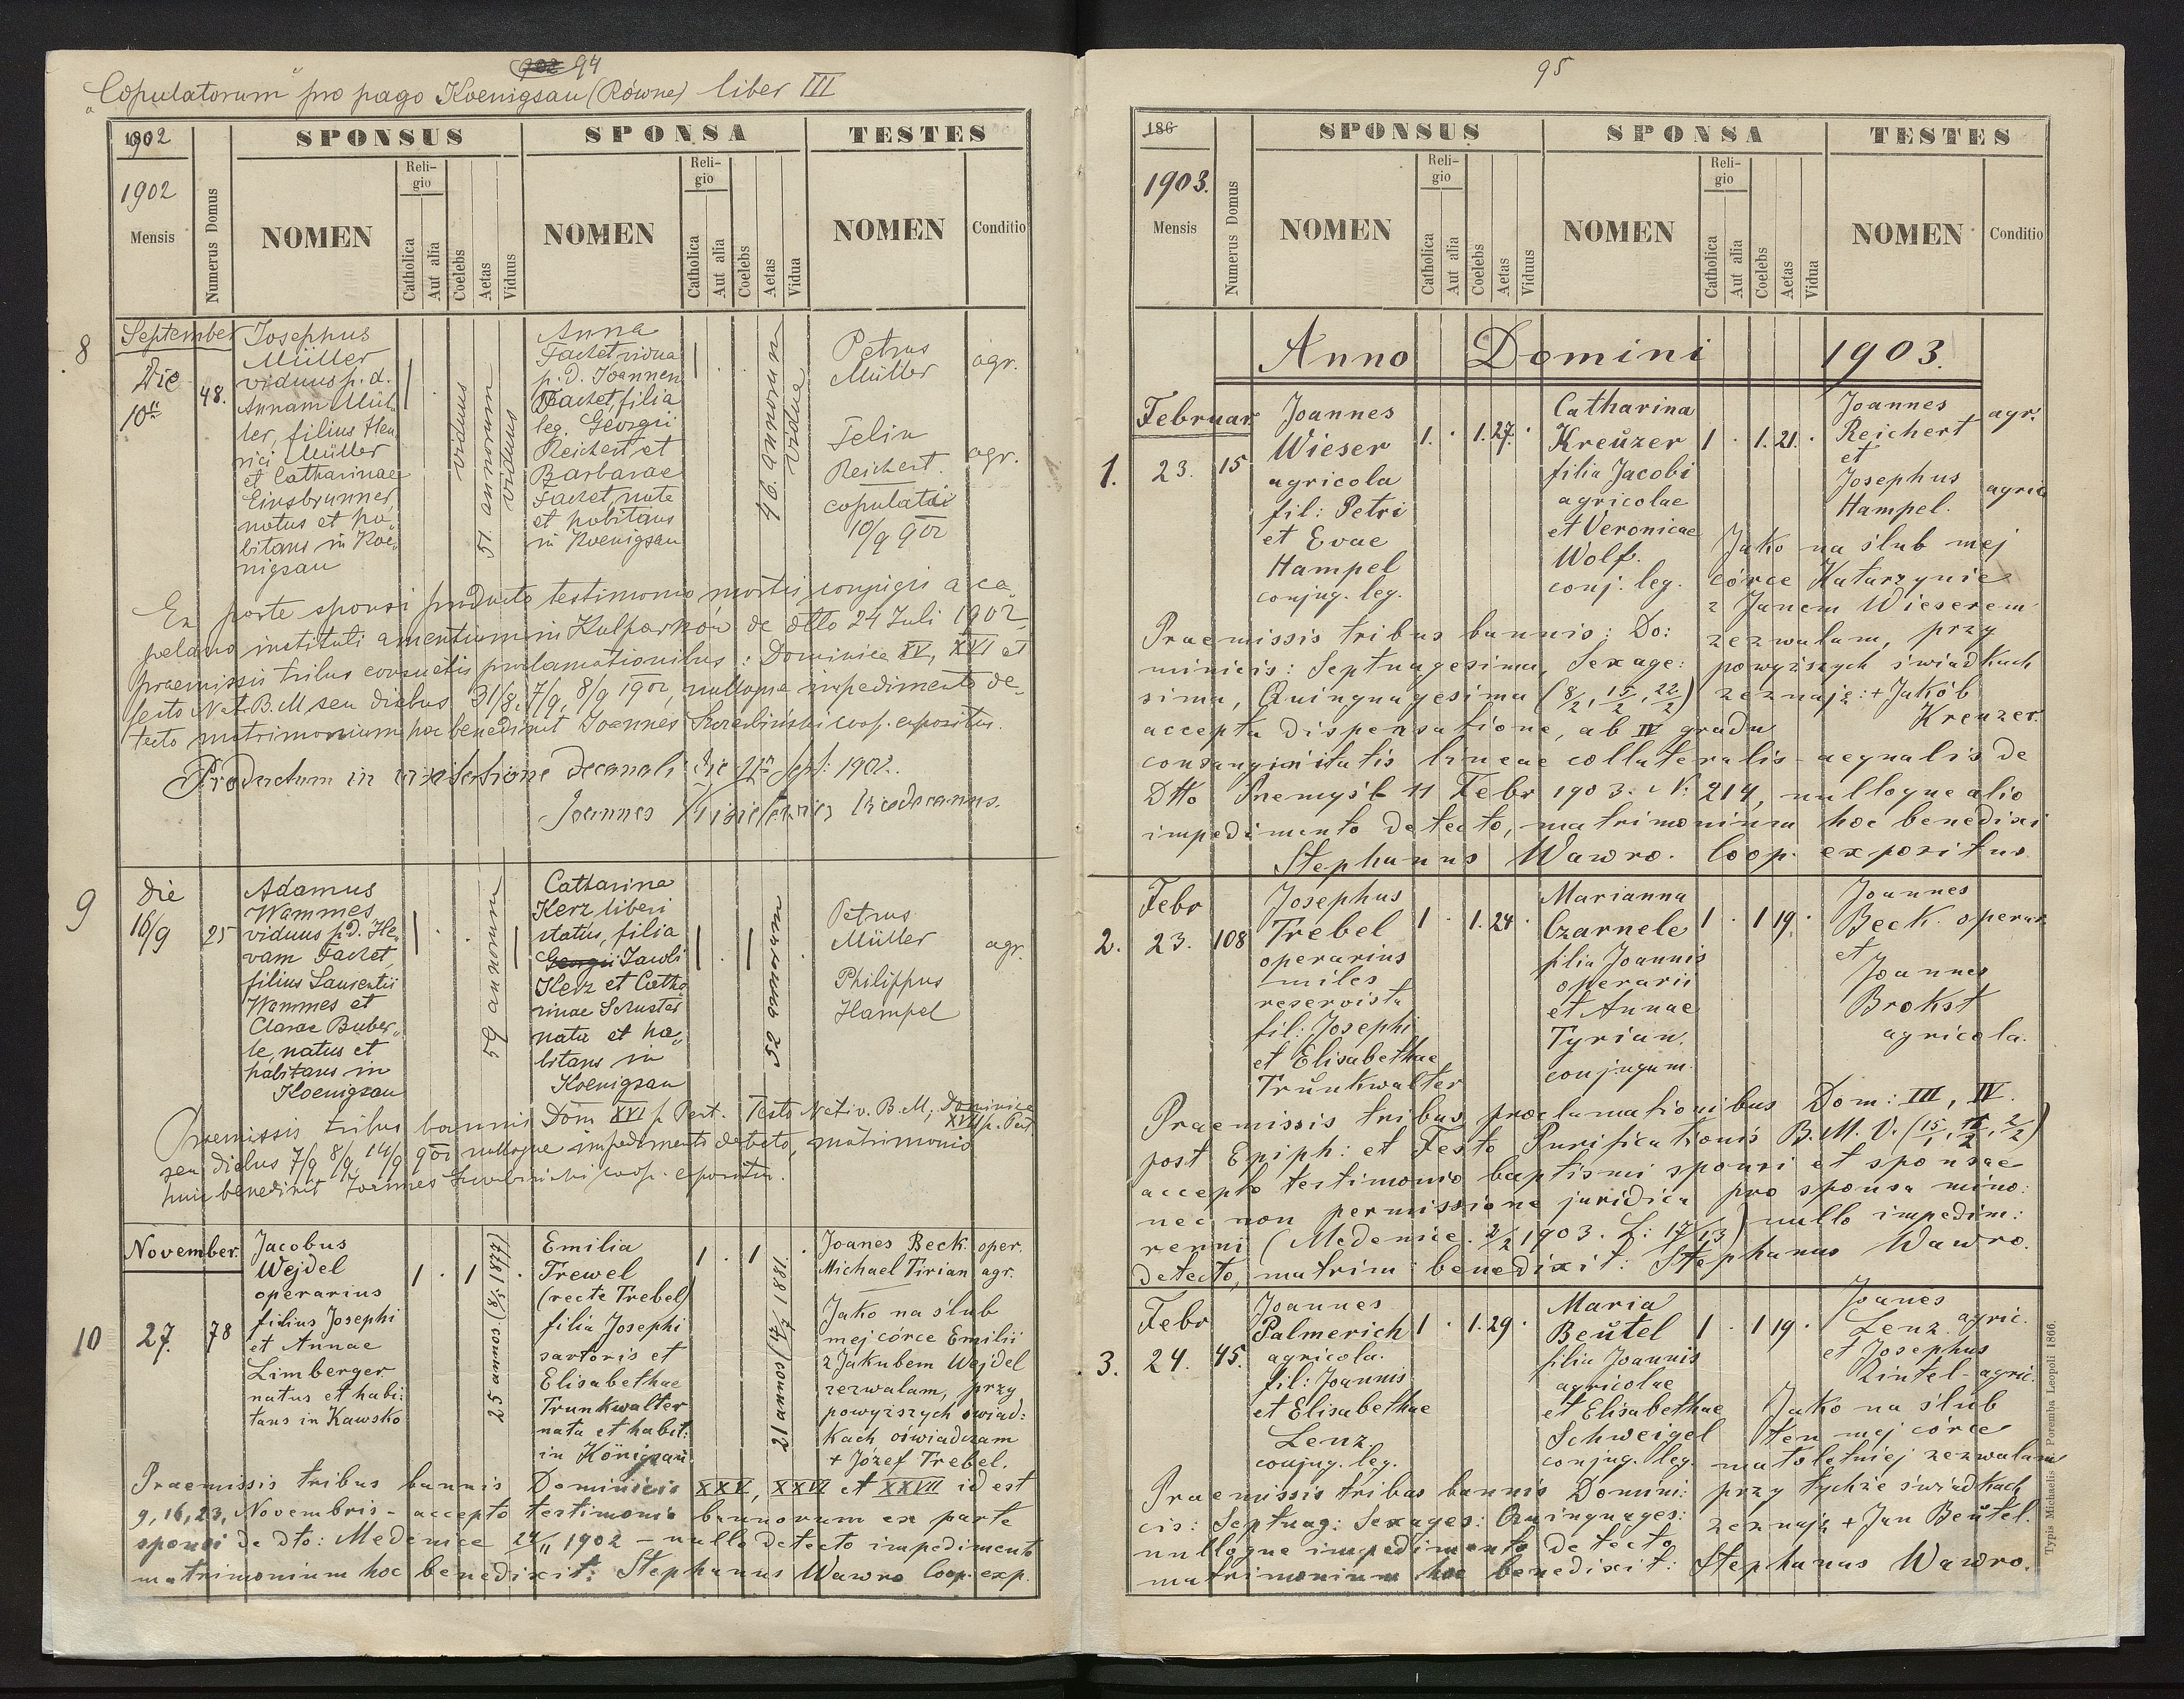 902 94
„Copulatorum" pro pago Koenigsau (Równe) liber III
1902
SPONSUS
SPONSA
TESTES
1902
Mensis
Numerus Domus
NOMEN
Religio
Catholica
Aut alia
Coelebs
Aetas
Viduus
NOMEN
Religio
Catholica
Aut alia
Coelebs
Aetas
Vidua
NOMEN
Conditio
8
September
Die
10ª
48.
Josephus
Müller
viduus p. d.
Annam Mül-
ler, filius Hen-
rici Müller
et Catharinae
Einsbrunner,
natus et ha-
bitans in Koe-
nigsau
1 .
viduus
51 annorum
viduus
Anna
Factet vidua
p. d. Joannem
Factet, filia
leg. Georgii
Reichert et
Barbarae
Factet, nata
et habitans
in Koenigsau
1 . .
46. annorum
vidua
Petrus
Müller
agr.
Felix
Reichert.
agr.
copulati
10/9 902
Ex parte sponsi producto testimonio mortis conjugis a ca-
pelano instituti amentium in Kulparków de dtto 24 Juli 1902
praemissis tribus consuetis proclamationibus: Dominice XV, XVI et
festo Nat. B. M. seu diebus 31/8, 7/9, 8/9 1902, nulloque impedimento de-
tecto matrimonium hoc benedixit Joannes Szczerbiński coop. expositus.
Productum in visitatione decanali die Sept: 1902.
Joannes Vicedecanus.
9
die
16/9
25
Adamus
Wammes
viduus p. d. He-
vam Factet
filius Laurentii
Wammes et
Clarae Buber-
le, natus et
habitans in
Koenigsau
1 . .
59 annorum
1
Catharina
Kerz liberi
status, filia
Georgii Jacobi
Kerz et Catha-
rinae Schuster
nata et ha-
bitans in
Koenigsau
1 . 1
52 annorum
Petrus
Müller
agr.
Philippus
Hampel
Praemissis tribus bannis Dom XVI p. Pent. Festo Nativ. B. M., Dominica XVII p. Pent
seu diebus 7/9 8/9, 14/9 902 nulloque impedimento detecto, matrimonio
huic benedixit Joannes Szczerbiński coop. expositus.
10
November.
27.
78
Jacobus
Wejdel
operarius
filius Josephi
et Annae
Limberger
natus et habi:
tans in Kawsko
1 . 1
25 annos
.
Emilia
Trewel
(recte Trebel)
filia Josephi
sartoris et
Elisabethae
Trunkwalter
nata et habit.
in Königsau
1 . 1
21 annos
.
Joanes Beck oper.
Michael Tirian agr.
Jako na ślub
mej córce Emilii
z Jakubem Wejdel
zezwalam, przy
powyższych świad:
kach oświadczam
+ Józef Trebel.
Praemissis tribus bannis Dominicis XXV, XXVI et XXVII id est
9, 16, 23, Novembris - accepto testimonio bannorum ex parte
sponsi de dto: Medenice 24/11 1902 - nullo detecto impedimento
matrimonium hoc benedixit: Stephanus Wawro Coop. exp.
95
186
SPONSUS
SPONSA
TESTES
1903.
Mensis
Numerus Domus
NOMEN
Religio
Catholica
Aut alia
Coelebs
Aetas
Viduus
NOMEN
Religio
Catholica
Aut alia
Coelebs
Aetas
Vidua
NOMEN
Conditio
Anno Domini 1903.
1.
Februar.
23.
15
Joannes
Wieser
agricola
fil: Petri
et Evae
Hampel
conjug. leg.
1. . 1. 27. .
Catharina
Kreŭzer
filia Jacobi
agricolae
et Veronicae
Wolf.
conj: leg.
1 . 1. 21. .
Joannes
Reichert
agr.
et
Josephus
Hampel.
agric
Jako na ślub mej
córce Katarzynie
z Janem Wieserem
zezwalam, przy
powyższych świadkach
zeznaję: + Jakób
Kreuzer.
Praemissis tribus bannis: Do:
minicis: Septuagesima, Sexage:
sima, Quinquagesima (8/2, 15/2, 22/2)
accepta dispensatione, ab IV gradu
consanguinitatis lineae collateralis aequalis de
Dtto Premyśl 11 Febr 1903. N: 214, nulloque alio
impedimento detecto, matrimonium hoc benedixi
Stephanus Wawro. Coop. expositus
2.
Febr
23.
108
Josephus
Trebel
operarius
miles
reservista
fil: Josephi
et Elisabethae
Trŭnkwalter
1 . 1. 24. .
Marianna
Czarnele
filia Joannis
operarii
et Annae
Tyrian.
conjugum.
1 . 1 19. .
Joannes
Beck. operar.
et
Joannes
Brokst
agricola.
Praemissis tribus proclamationibus Dom: III, IV.
post Epiph: et Festo Purificationis B. M. V.
accepto testimonio baptismi sponsi et sponsae
nec non permissione juridica pro sponsa mino:
renni (Medenice. 2/2 1903. L: 17/13) nullo impedim:
detecto, matrim: benedixit: Stephanus Wawro.
3.
Febr
24.
45.
Joannes
Palmerich
agricola.
fil: Joannis
et Elisabethae
Lenz.
conjug. leg.
1 . 1. 29 .
Maria
Beŭtel
filia Joannis
agricolae
et Elisabethae
Schweigel
conjug. leg.
1 . 1 19 .
Joanes
Lenz. agric.
et Josephus
Zintel - agric.
Jako na ślub
ten mej córce
małoletniej zezwalam
przy tychże świadkach
zeznaję + Jan Beŭtel.
Praemissis tribus bannis Domini:
cis: Septuag: Sexages: Quinquages:
nulloque impedimento detecto
matrimonium hoc benedixit: Stephanus Wawro.
Typis Michaelis Poremba Leopoli 1866.